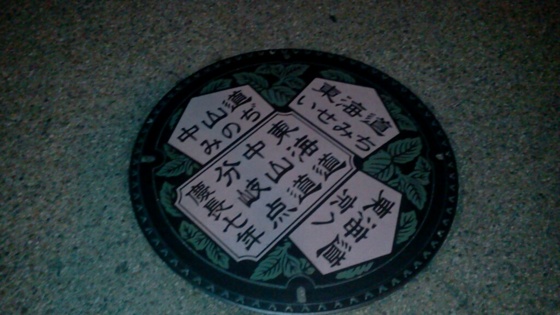 中山道
みのぢ
東海道
いせみち
東海道
中山道
分岐点
慶長七年
東海道